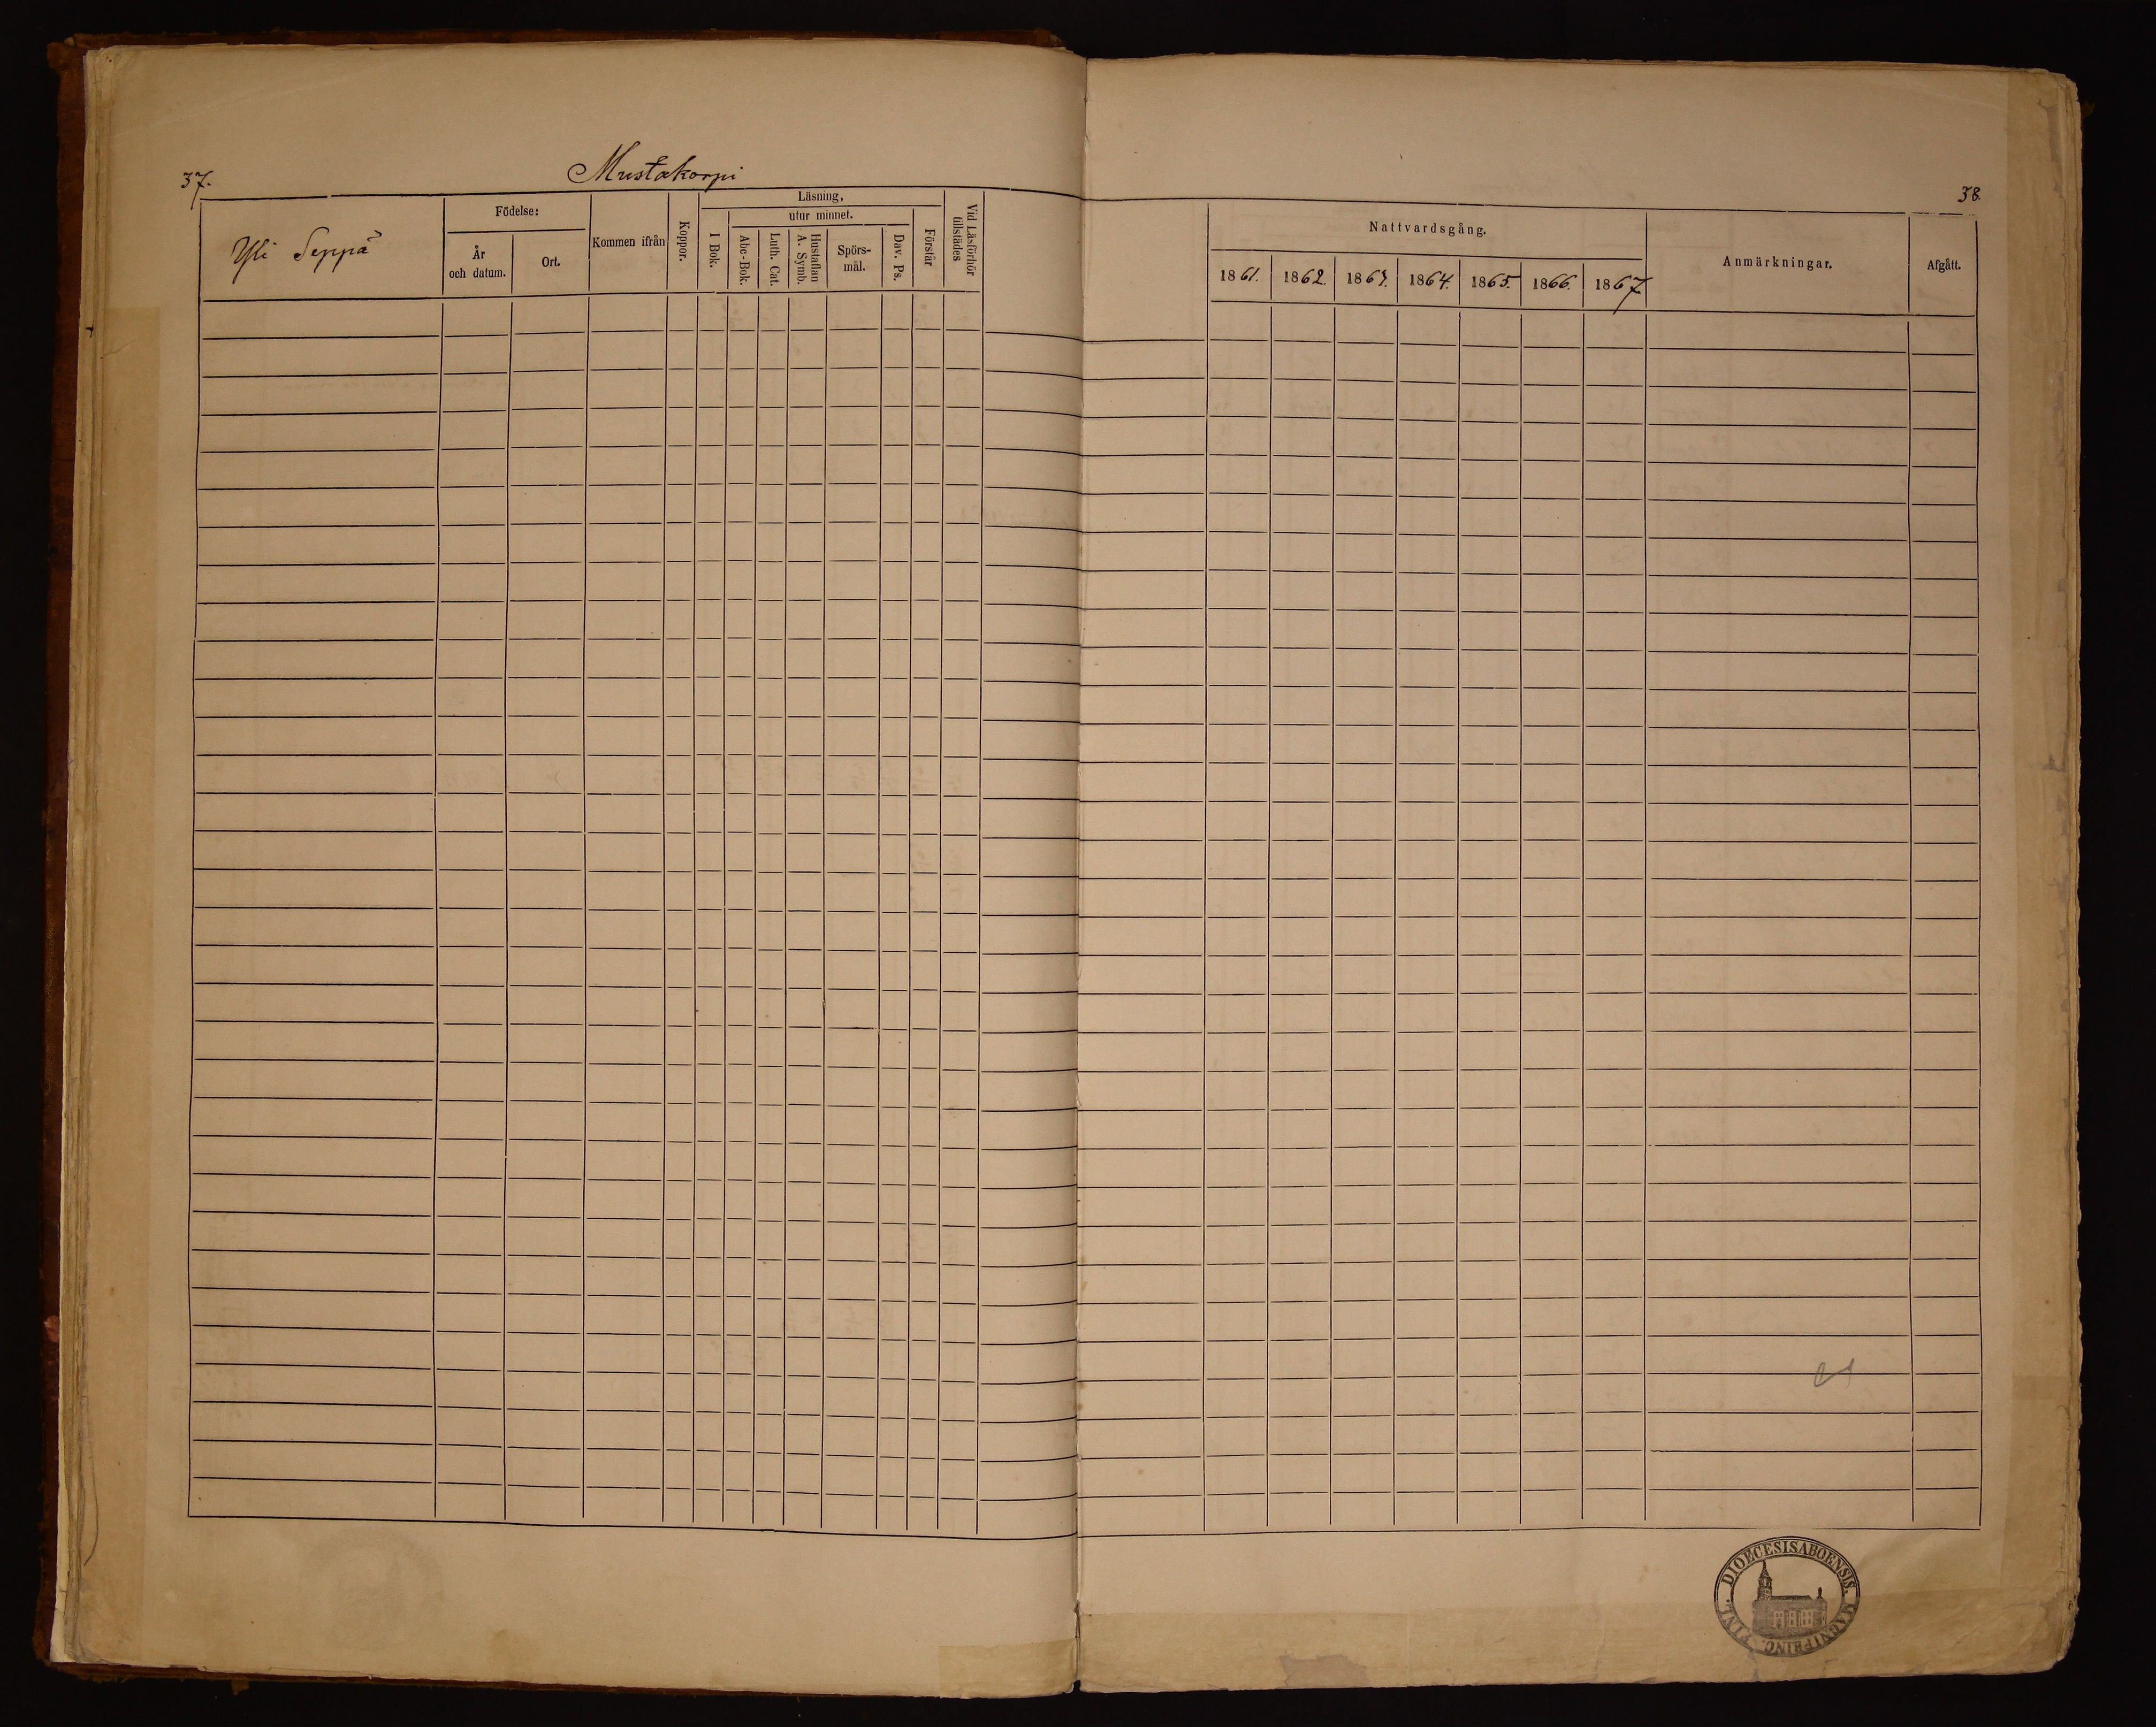 37.
Mustakorpi
Yli Seppä
Födelse:
År
och datum.
Ort.
Kommen ifrån
Koppor.
Läsning,
I Bok.
utur minnet.
Abc-Bok.
Luth. Cat.
Hustaflan
A. Symb.
Spörs-
mål.
Dav. Ps.
Förstår
Vid Läsförhör
tillstädes
38.
Nattvardsgång.
1861.
1862.
1863.
1864.
1865.
1866.
1867
Anmärkningar.
Afgått.
DIOECESIS ABOENSIS. MAGNI PRINC. FINL.